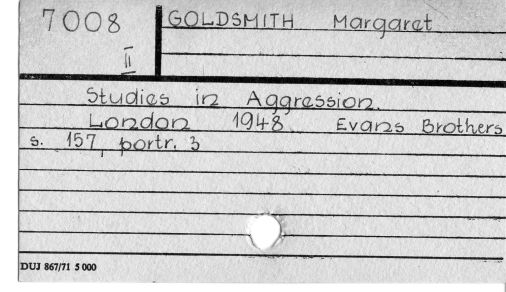 7008
II
GOLDSMITH Margaret
Studies in Aggression.
London 1948 Evans Brothers
s. 157, portr. 3
DUJ 867/71 5 000